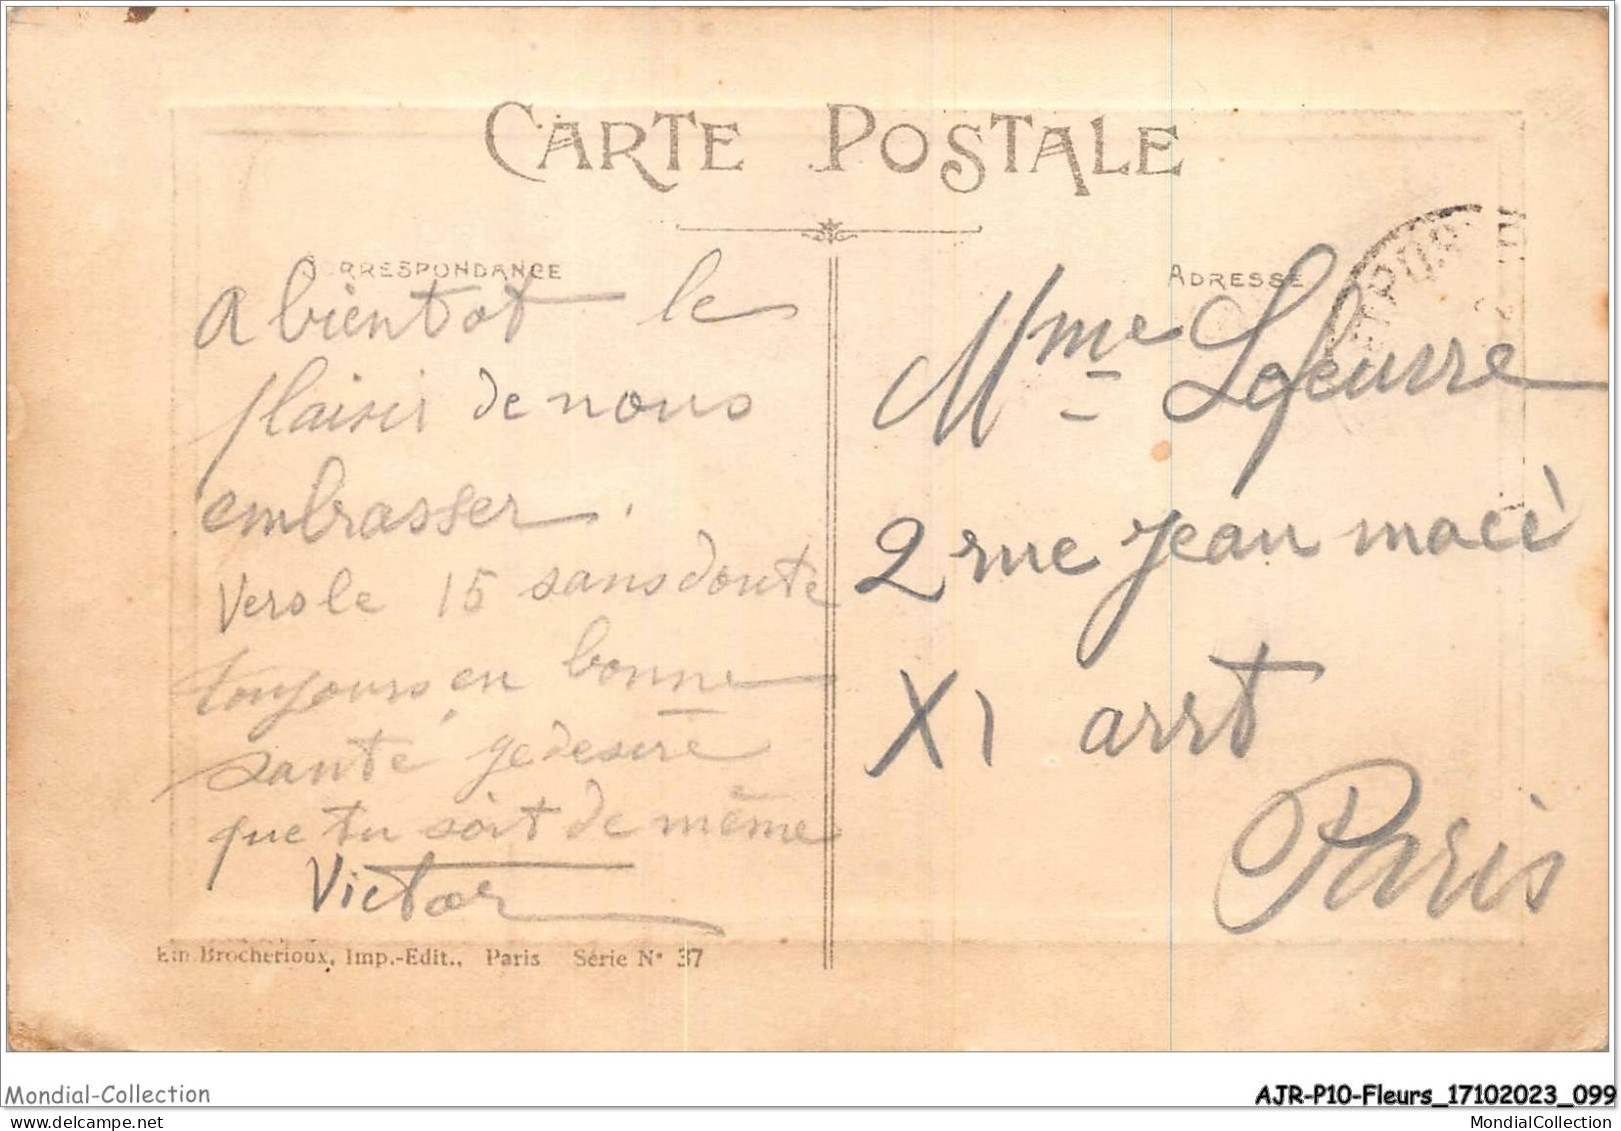 CARTE POSTALE
CORRESPONDANCE
ADRESSE
A bientot le
plaisir de nous
embrasser.
Vers le 15 sans doute
toujours en bonne
santé je desire
que tu soit de même
Victor
Mme Lefeuvre
2 rue jean macè
XI arrt
Paris
Em Brocherioux, Imp.-Edit., Paris Série N° 37
Mondial-Collection
AJR-P10-Fleurs_17102023_099
MondialCollection
MondialCollection